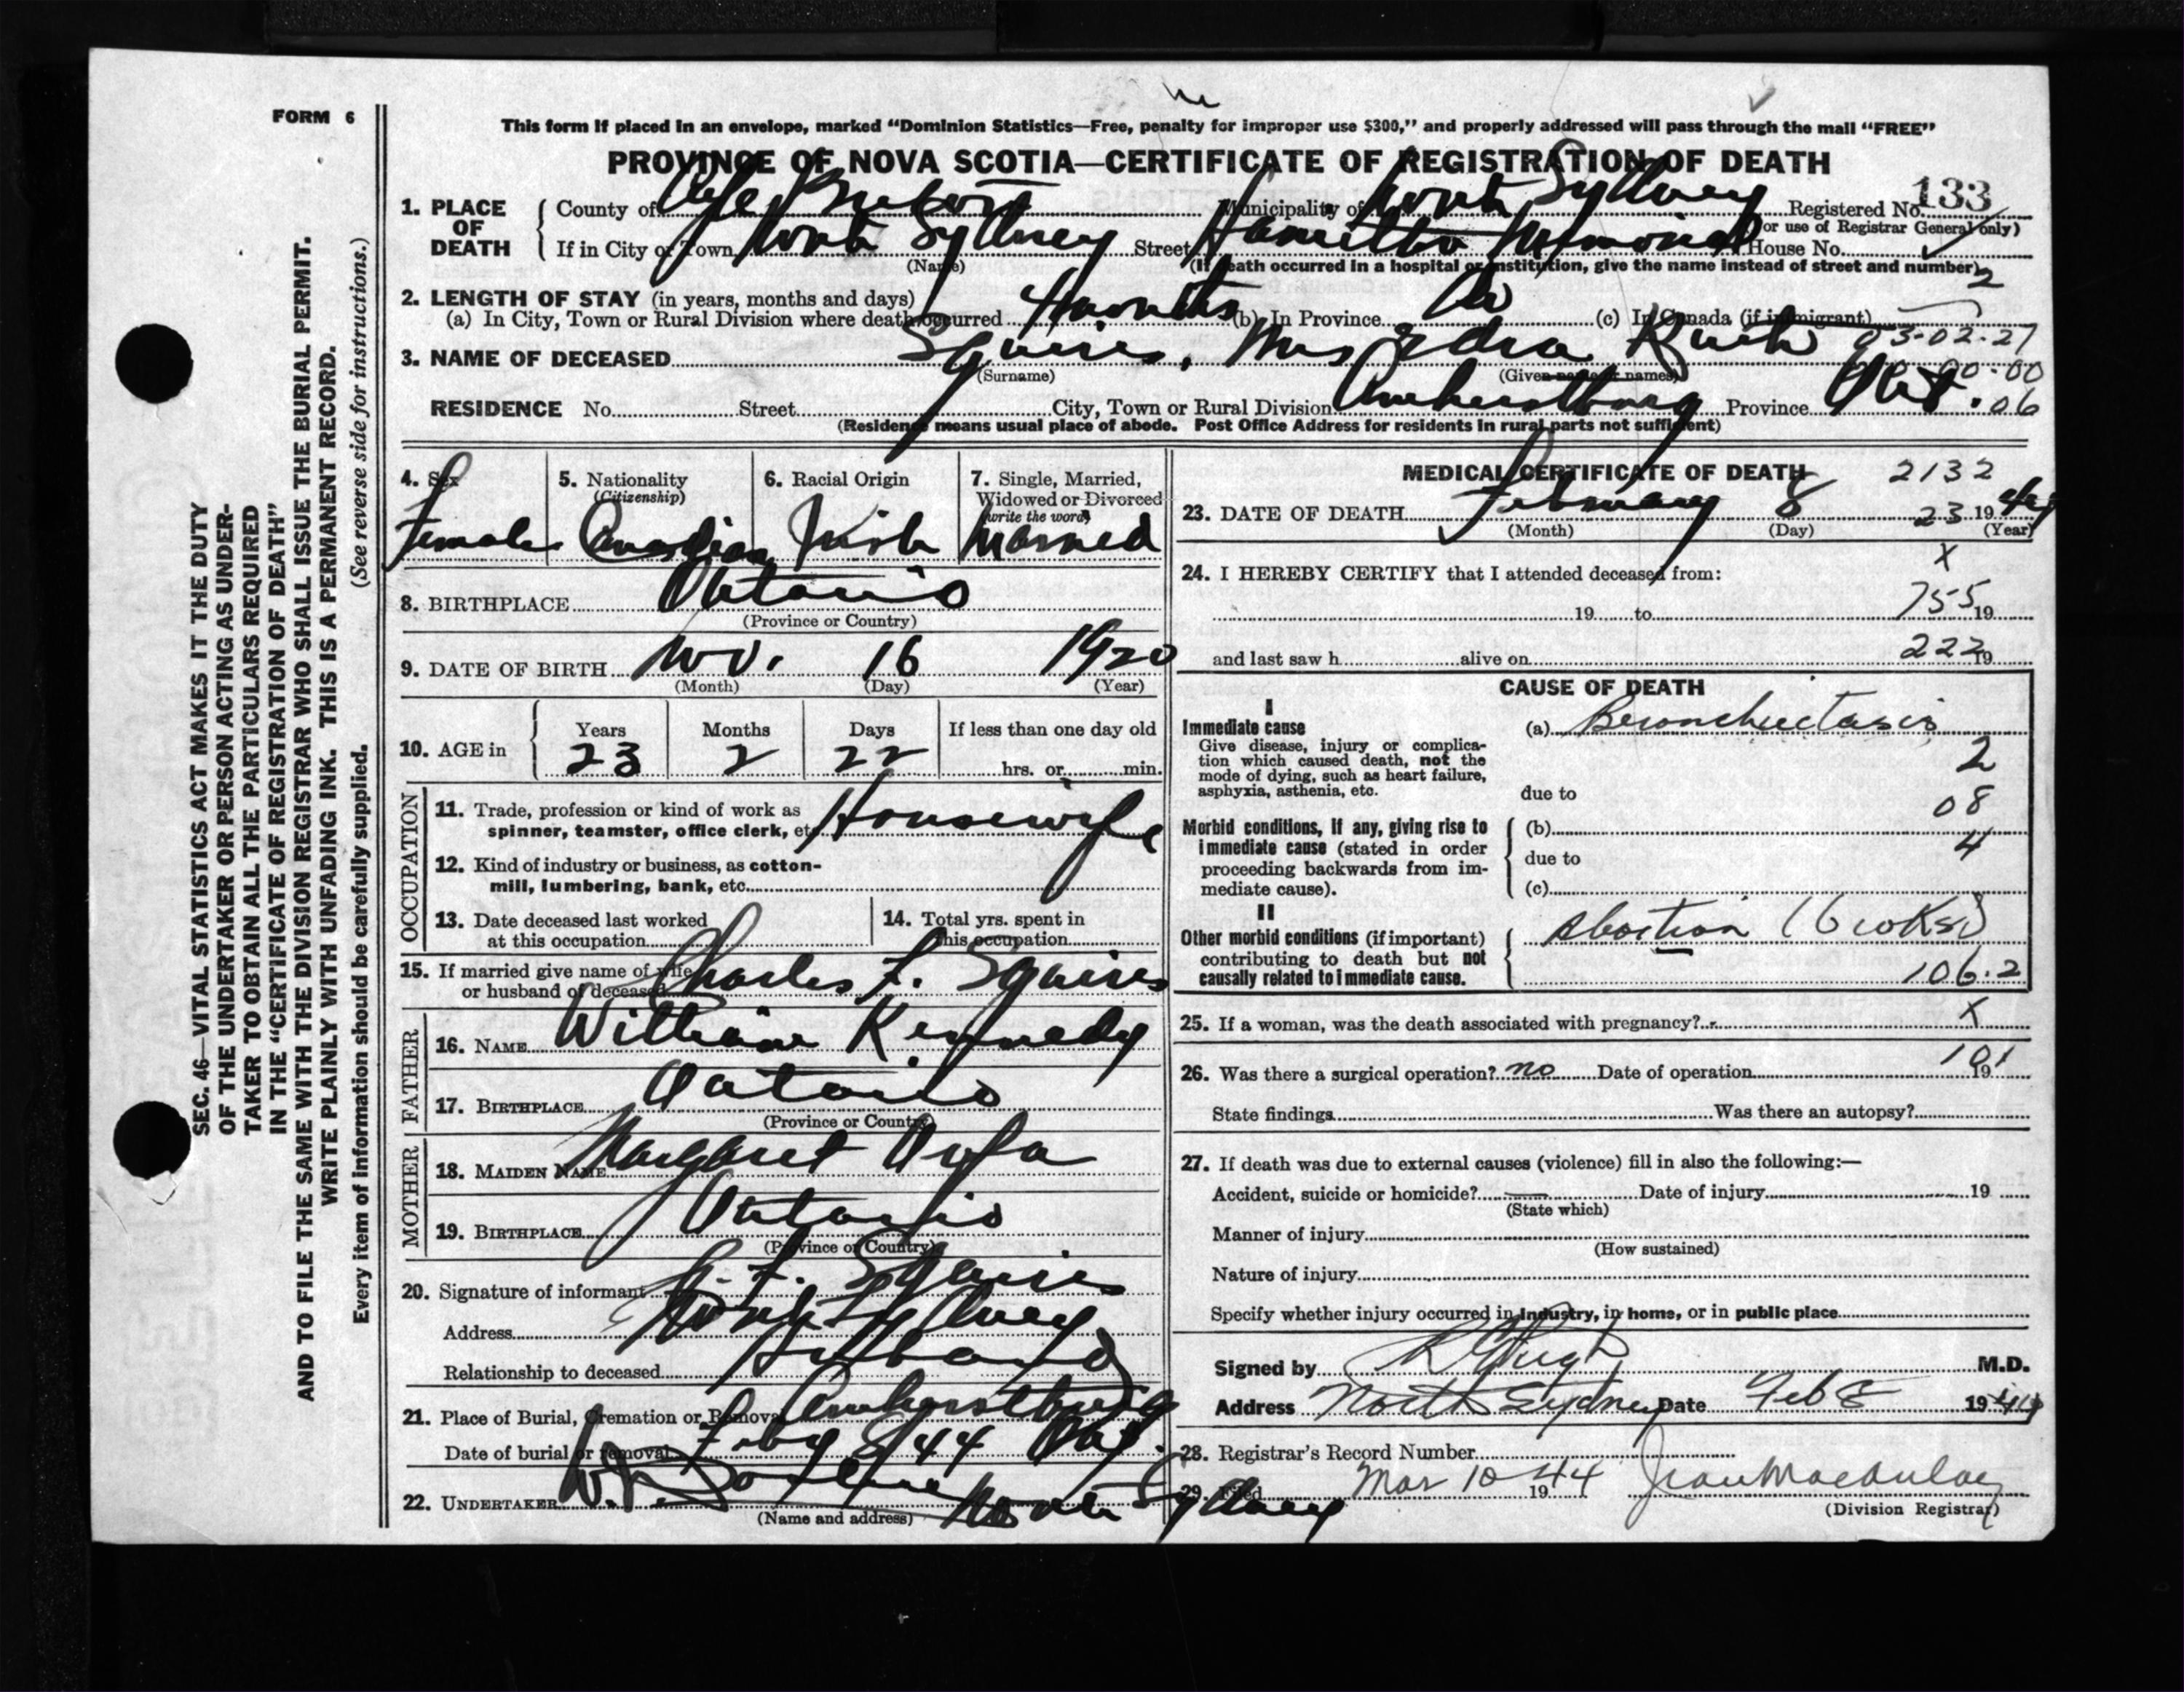 FORM 6
This form if placed in an envelope, marked "Dominion Statistics—Free, penalty for improper use $300," and properly addressed will pass through the mail "FREE"
PROVINCE OF NOVA SCOTIA—CERTIFICATE OF REGISTRATION OF DEATH
133
1. PLACE OF DEATH
County of Cape Breton Municipality of North Sydney Registered No.
(For use of Registrar General only)
If in City or Town North Sydney Street Hamilton Memorial House No.
(Name) (If death occurred in a hospital or institution, give the name instead of street and number)
2
2. LENGTH OF STAY (in years, months and days)
(a) In City, Town or Rural Division where death occurred 4 months (b) In Province Do (c) In Canada (if immigrant)
03-02-27
3. NAME OF DECEASED Squires, Mrs Edna Ruth
(Surname) (Given name or names)
00-00
RESIDENCE No. Street City, Town or Rural Division Amherstburg Province Ont. 06
(Residence means usual place of abode. Post Office Address for residents in rural parts not sufficient)
4. Sex
5. Nationality
(Citizenship)
6. Racial Origin
7. Single, Married,
Widowed or Divorced
(write the word)
Female Canadian Irish Married
8. BIRTHPLACE Ontario
(Province or Country)
9. DATE OF BIRTH Nov. 16 1920
(Month) (Day) (Year)
10. AGE in
Years Months Days If less than one day old
23 2 22 hrs. or min.
OCCUPATION
11. Trade, profession or kind of work as
spinner, teamster, office clerk, etc. Housewife
12. Kind of industry or business, as cotton-
mill, lumbering, bank, etc.
13. Date deceased last worked
at this occupation
14. Total yrs. spent in
this occupation
15. If married give name of wife
or husband of deceased Charles F. Squires
FATHER
16. NAME William Kennedy
17. BIRTHPLACE Ontario
(Province or Country)
MOTHER
18. MAIDEN NAME Margaret
19. BIRTHPLACE Ontario
(Province or Country)
20. Signature of informant C. F. Squires
Address North Sydney
Relationship to deceased Husband
21. Place of Burial, Cremation or Removal Amherstburg
Date of burial or removal Feby 8/44 Ont.
22. UNDERTAKER North Sydney
(Name and address)
MEDICAL CERTIFICATE OF DEATH
2132
23. DATE OF DEATH February 8 23 1944
(Month) (Day) (Year)
x
24. I HEREBY CERTIFY that I attended deceased from:
19 to 19
755
and last saw h alive on 19
222
CAUSE OF DEATH
I
Immediate cause
Give disease, injury or complica-
tion which caused death, not the
mode of dying, such as heart failure,
asphyxia, asthenia, etc.
(a) Bronchiectasis
2
due to
08
Morbid conditions, if any, giving rise to
immediate cause (stated in order
proceeding backwards from im-
mediate cause).
(b)
4
due to
(c)
II
Other morbid conditions (if important)
contributing to death but not
causally related to immediate cause.
Abortion (6 wks)
106.2
25. If a woman, was the death associated with pregnancy? x
101
26. Was there a surgical operation? no Date of operation 19
State findings Was there an autopsy?
27. If death was due to external causes (violence) fill in also the following:—
Accident, suicide or homicide? Date of injury 19
(State which)
Manner of injury
(How sustained)
Nature of injury
Specify whether injury occurred in industry, in home, or in public place
Signed by M.D.
Address North Sydney Date Feb 8 1944
28. Registrar's Record Number
29. Filed Mar 10 1944 Jean MacAulay
(Division Registrar)
SEC. 46—VITAL STATISTICS ACT MAKES IT THE DUTY
OF THE UNDERTAKER OR PERSON ACTING AS UNDER-
TAKER TO OBTAIN ALL THE PARTICULARS REQUIRED
IN THE "CERTIFICATE OF REGISTRATION OF DEATH"
AND TO FILE THE SAME WITH THE DIVISION REGISTRAR WHO SHALL ISSUE THE BURIAL PERMIT.
WRITE PLAINLY WITH UNFADING INK. THIS IS A PERMANENT RECORD.
Every item of information should be carefully supplied. (See reverse side for instructions.)